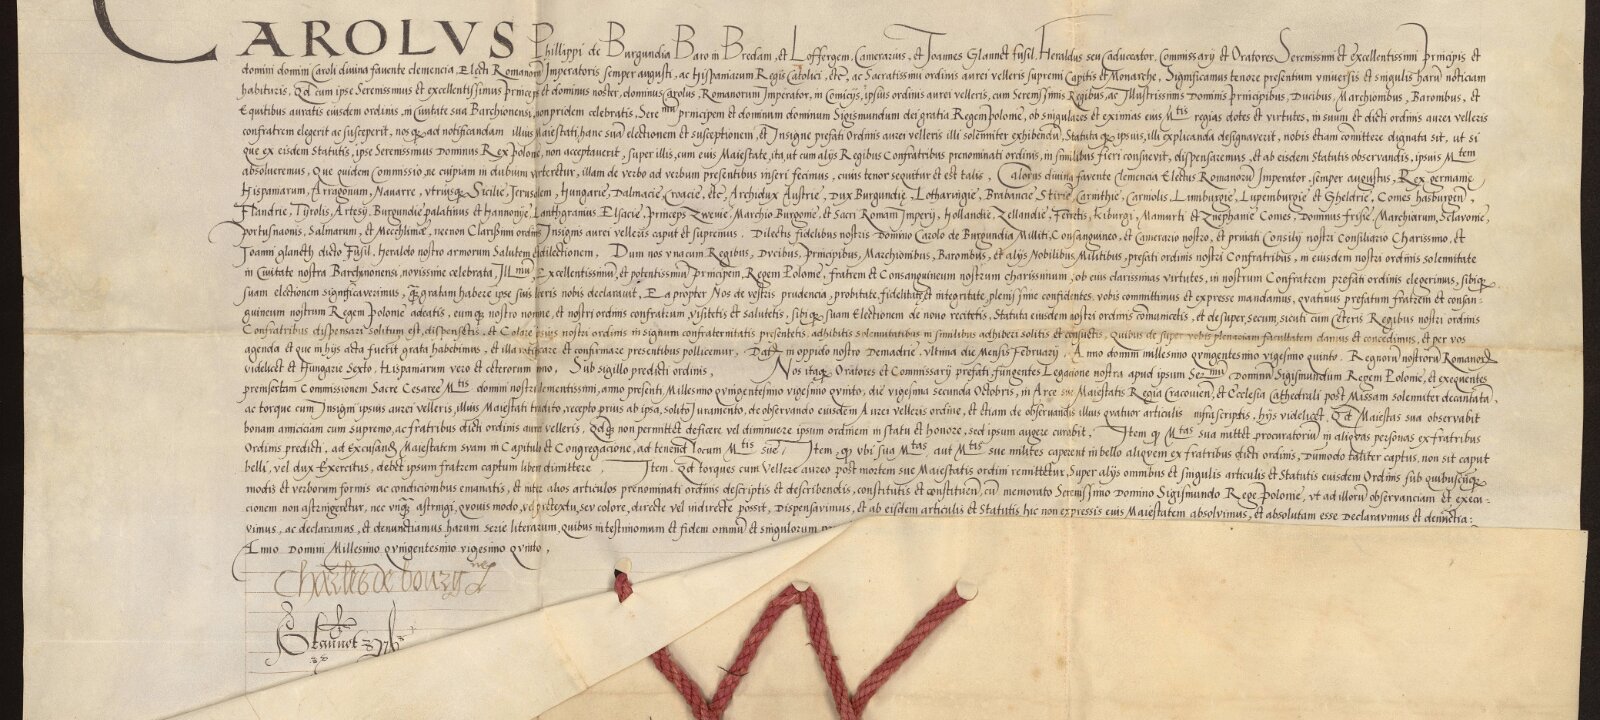 CAROLVS Phillippi de Burgundia Baro in Bredam, et Loffergem, Camerarius, et Joannes Glannet fusil, Heraldus seu caduceator, Commissarij et Oratores Serenissimi et excellentissimi principis et
domini domini Caroli divina favente clemencia, Electi Romanorū Imperatoris semper augusti, ac Hispaniarum Regis Catolici, etc̄, ac Sacratissimi ordinis aurei velleris supremi Capitis et Monarche, Significamus tenore presentium vniuersis et singulis harū noticiam
habituris, Qd cum ipse Serenissimus et excellentissimus princeps et dominus noster, dominus Carolus, Romanorum Imperator, in Comicijs, ipsius ordinis aurei velleris, cum Serenissimis Regibus, ac Illustrissimis Dominis principibus, Ducibus, Marchionibus, Baronibus, et
Equitibus auratis eiusdem ordinis, in Civitate sua Barchionensi, nonpridem celebratis, Sere mū principem et dominum dominum Sigismundum dei gratia Regem polonie, ob singulares et eximias eius Mtis regias dotes et virtutes, in suum et dicti ordinis aurei velleris
confratrem elegerit ac susceperit, nosq ad notificandam illius Maiestati, hanc suā electionem et susceptionem, et Insigne prefati Ordinis aurei velleris illi solemniter exhibendū, Statuta q ipsius, illi explicanda designaverit, nobis etiam comittere dignata sit, ut si
que ex eisdem Statutis, ipse Serenissimus Dominus Rex polonie, non acceptaverit, super illis, cum eius Maiestate, ita ut cum alijs Regibus Confratribus prenominati ordinis, in similibus fieri consuevit, dispensaremus, et ab eisdem Statutis observandis, ipsius Mtem
absolueremus, Que quidem Commissio, ne cuipiam in dubium verteretur, illam de verbo ad verbum presentibus inseri fecimus, cuius tenor sequitur et est talis, Calorus divina favente clemencia Electus Romanorū Imperator, semper augustus, Rex germanie
Hispaniarum, Arragonum, Nauarre, vtriusq Sicilie, Jerusalem, Hungarie, Dalmacie, Croacie, etc, Archidux Austrie, Dux Burgundie, Lotharingie, Brabancie Stirie, Carinthie, Carniolis, Limburgie, Lupemburgie et Gheldrie, Comes hasburgen,
Flandrie, Tyrolis, Artesij, Burgundie palatinus et Hannonie, Lanthgravius, Elsacie, princeps Zweue, Marchio Burgonie, et Sacri Romani Imperij, Hollandie, Zellandie, Ferretis, Kiburgi, Mamurti et Zuephanie Comes, Dominus frisie, Marchiarum, Sclavonie,
portusnaonis, Salinarum, et Mechlinie, necnon Clarissimi ordinis Insignis aurei velleris caput et supremus. Dilectis fidelibus nostris Domino Carolo de Burgundia Milliti, Consanguineo, et Camerario nostro, et privati Consilij nostri Consiliario Charissimo, et
Joanni glaneth dicto Fusil, Heraldo nostro armorum Salutem et dilectionem, Dum nos vnacum Regibus, Ducibus, principibus, Marchionibus, Baronibus, et alijs Nobilibus Militibus, prefati ordinis nostri Confratribus, in eiusdem nostri ordinis solemnitate
in Civitate nostra Barchinonensi, novissime celebrata, Jll mū, Excellentissimum, et potentissimum principem, Regem Polonie, fratrem et Consanguineum nostrum charissimum, ob eius clarissimas virtutes, in nostrum Confratrem prefati ordinis elegerimus, sibiq
suam electionem significaverimus, quam gratam habere ipse suis literis nobis declaravit, Ea propter Nos de vestris prudencia, probitate, fidelitate et integritate plenissime confidentes, vobis committimus et expresse mandamus, quatinus prefatum fratrem et consan-
guineum nostrum Regem polonie adeatis, eumq nostro nomine, et nostri ordinis confratrum, visitetis et salutetis, sibiq suam Electionem de nouo recitetis, Statuta eiusdem nostri ordinis comunicetis, et desuper, secum, sicuti cum ceteris Regibus nostri ordinis
Confratribus dispensari solitum est, dispensetis, et Colore ipsius nostri ordinis in signum confraternitatis presentetis, adhibitis solemnitatibus in similibus adhiberi solitis et consuetis, Quibus de super vobis plenariam facultatem damus et concedimus, et per vos
agenda et que in hijs acta fuerit grata habebimus, et illa ratificare et confirmare presentibus pollicemur, Dat in oppido nostro Demadrie, vltima die Mensis February, Anno domini millesimo quingentesimo vigesimo quinto, Regnorū nostrorū Romanorū
videlicet et Hungarie Sexto, Hispaniarum vero et ceterorum nono, Sub sigillo predicti ordinis, Nos itaq Oratores et Commissarij prefati, fungentes Legacione nostra apud ipsum Ser mū Dominū Sigismundum Regem Polonie, et exequentes
preinsertam Commissionem Sacre Cesaree Mtis domini nostri clementissimi, anno presenti Millesimo quingentesimo vigesimo quinto, die vigesima secunda Octobris, in Arce sue Maiestatis Regia Cracovien, et Ecclesia Cathedrali post Missam solemniter decantatā,
ac torque cum Insigni ipsius aurei velleris, illius Maiestati tradito, recepto prius ab ipsa, solito Juramento, de observando eiusdem Aurei velleris ordine, et etiam de observandis illius quatuor articulis infrascriptis, hijs videlicet, Qd Maiestas sua observabit
bonam amiciciam cum supremo, ac fratribus dicti ordinis aurei velleris, Qd q non permittet deficere vel diminuere ipsum ordinem in statu et honore, sed ipsum augere curabit, Item q Mtas sua mittet procuratoriū in aliquas personas ex fratribus
Ordinis predicti, ad excusandā Maiestatem svam in Capitulis et Congregacione, ad tenend locum Mtis sue, Item, q vbi sua Mtas, aut Mtis sue milites caperent in bello aliquem ex fratribus dicti ordinis, dumodo taliter captus, non sit caput
belli, vel dux Exercitus, debet ipsum fratrem captum libere dimittere, Item, Qd torques cum Vellere aureo post mortem sue Maiestatis ordini remittetur, Super alijs omnibus et singulis articulis et Statutis eiusdem Ordinis sub quibuscūq
modis et verborum formis ac condicionibus emanatis, et inter alios articulos prenominati ordinis descriptis et describendis, constitutis et constituen, cū memorato Serenissimo Domino Sigismundo Rege Polonie, vt ad illorū observanciam et execu-
cionem non astringeretur, nec vnquam astringi, quovis modo, vel pretextu, sev colore, directe vel indirecte possit, Dispensavimus, et ab eisdem articulis et Statutis hic non expressis eius Maiestatem absolvimus, et absolutam esse declaravimus et denuncia-
vimus, ac declaramus, et denunctiamus harum serie literarum, Quibus in testimonium et fidem omniū et singulorum
Anno Domini Millesimo quingentesimo vigesimo quinto,
Charles de bourgne
Glannet